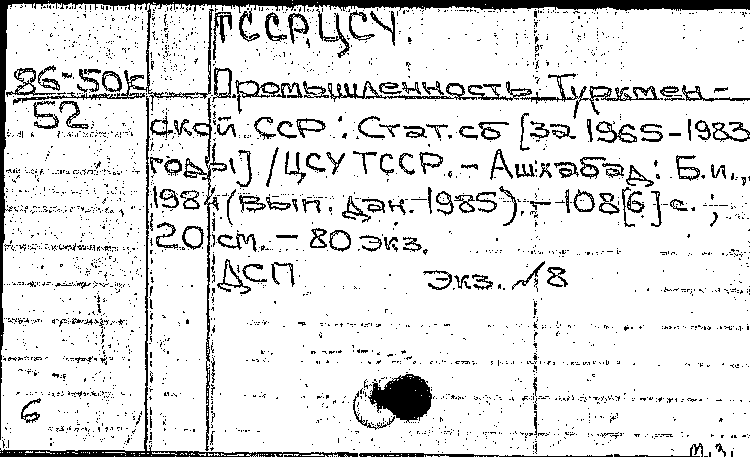 ТССР. ЦСУ.
86-50к Промышленность Туркмен-
52
ской ССР : Стат. сб [за 1965-1983
годы] / ЦСУ ТССР. - Ашхабад : Б.и.,
1984 (вып. дан. 1985). - 108[6] с. ;
20 см. - 80 экз.
ДСП Экз. №8
6
м.з.